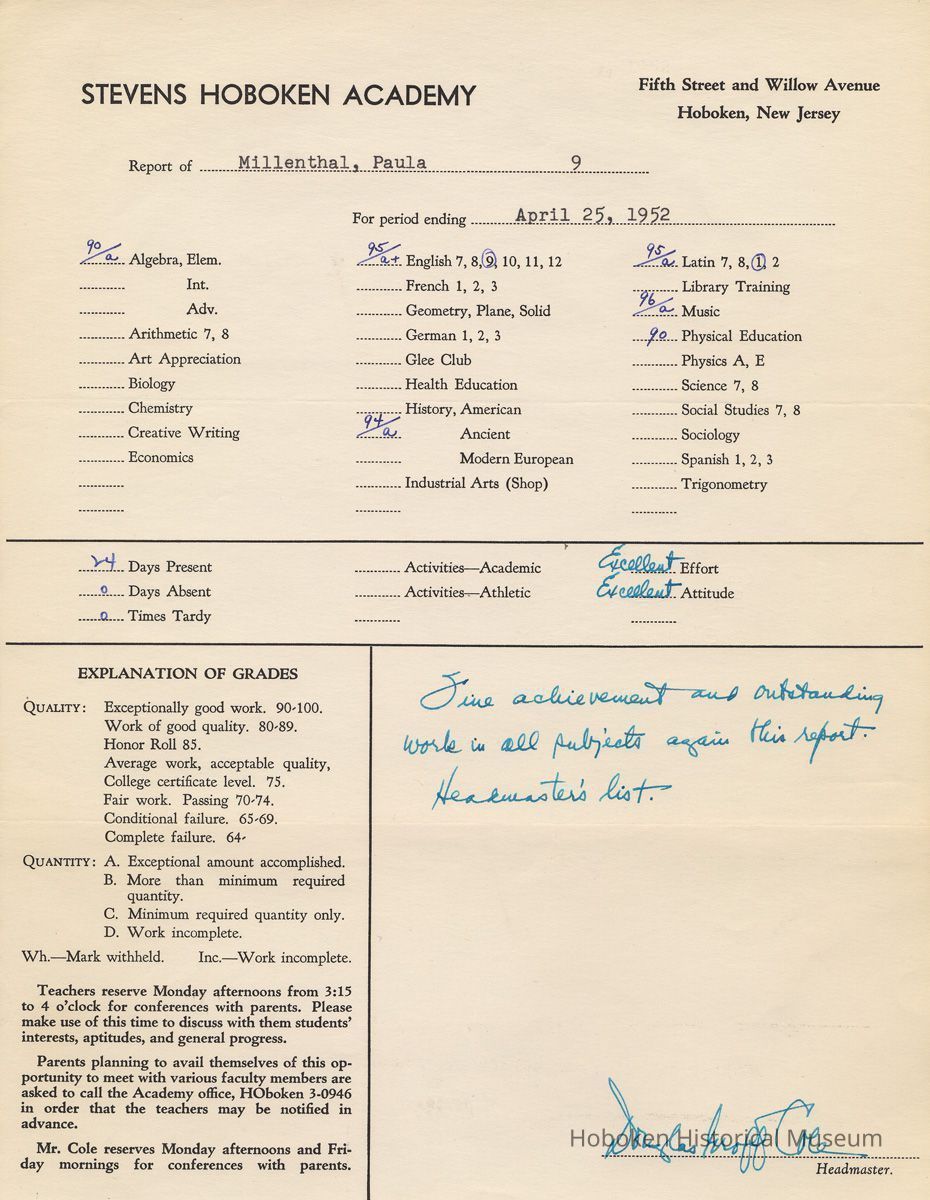 STEVENS HOBOKEN ACADEMY
Fifth Street and Willow Avenue
Hoboken, New Jersey
Report of Millenthal, Paula 9
For period ending April 25, 1952
90/a Algebra, Elem.
Int.
Adv.
Arithmetic 7, 8
Art Appreciation
Biology
Chemistry
Creative Writing
Economics
95/a+ English 7, 8, 9, 10, 11, 12
French 1, 2, 3
Geometry, Plane, Solid
German 1, 2, 3
Glee Club
Health Education
History, American
94/a Ancient
Modern European
Industrial Arts (Shop)
95/a Latin 7, 8, 1, 2
Library Training
96/a Music
90 Physical Education
Physics A, E
Science 7, 8
Social Studies 7, 8
Sociology
Spanish 1, 2, 3
Trigonometry
24 Days Present
0 Days Absent
0 Times Tardy
Activities—Academic
Activities—Athletic
Excellent Effort
Excellent Attitude
EXPLANATION OF GRADES
QUALITY: Exceptionally good work. 90-100.
Work of good quality. 80-89.
Honor Roll 85.
Average work, acceptable quality,
College certificate level. 75.
Fair work. Passing 70-74.
Conditional failure. 65-69.
Complete failure. 64-
QUANTITY: A. Exceptional amount accomplished.
B. More than minimum required
quantity.
C. Minimum required quantity only.
D. Work incomplete.
Wh.—Mark withheld. Inc.—Work incomplete.
Teachers reserve Monday afternoons from 3:15
to 4 o'clock for conferences with parents. Please
make use of this time to discuss with them students'
interests, aptitudes, and general progress.
Parents planning to avail themselves of this op-
portunity to meet with various faculty members are
asked to call the Academy office, HOboken 3-0946
in order that the teachers may be notified in
advance.
Mr. Cole reserves Monday afternoons and Fri-
day mornings for conferences with parents.
Fine achievement and outstanding
work in all subjects again this report.
Headmaster's list.
Douglas Cole
Hoboken Historical Museum
Headmaster.